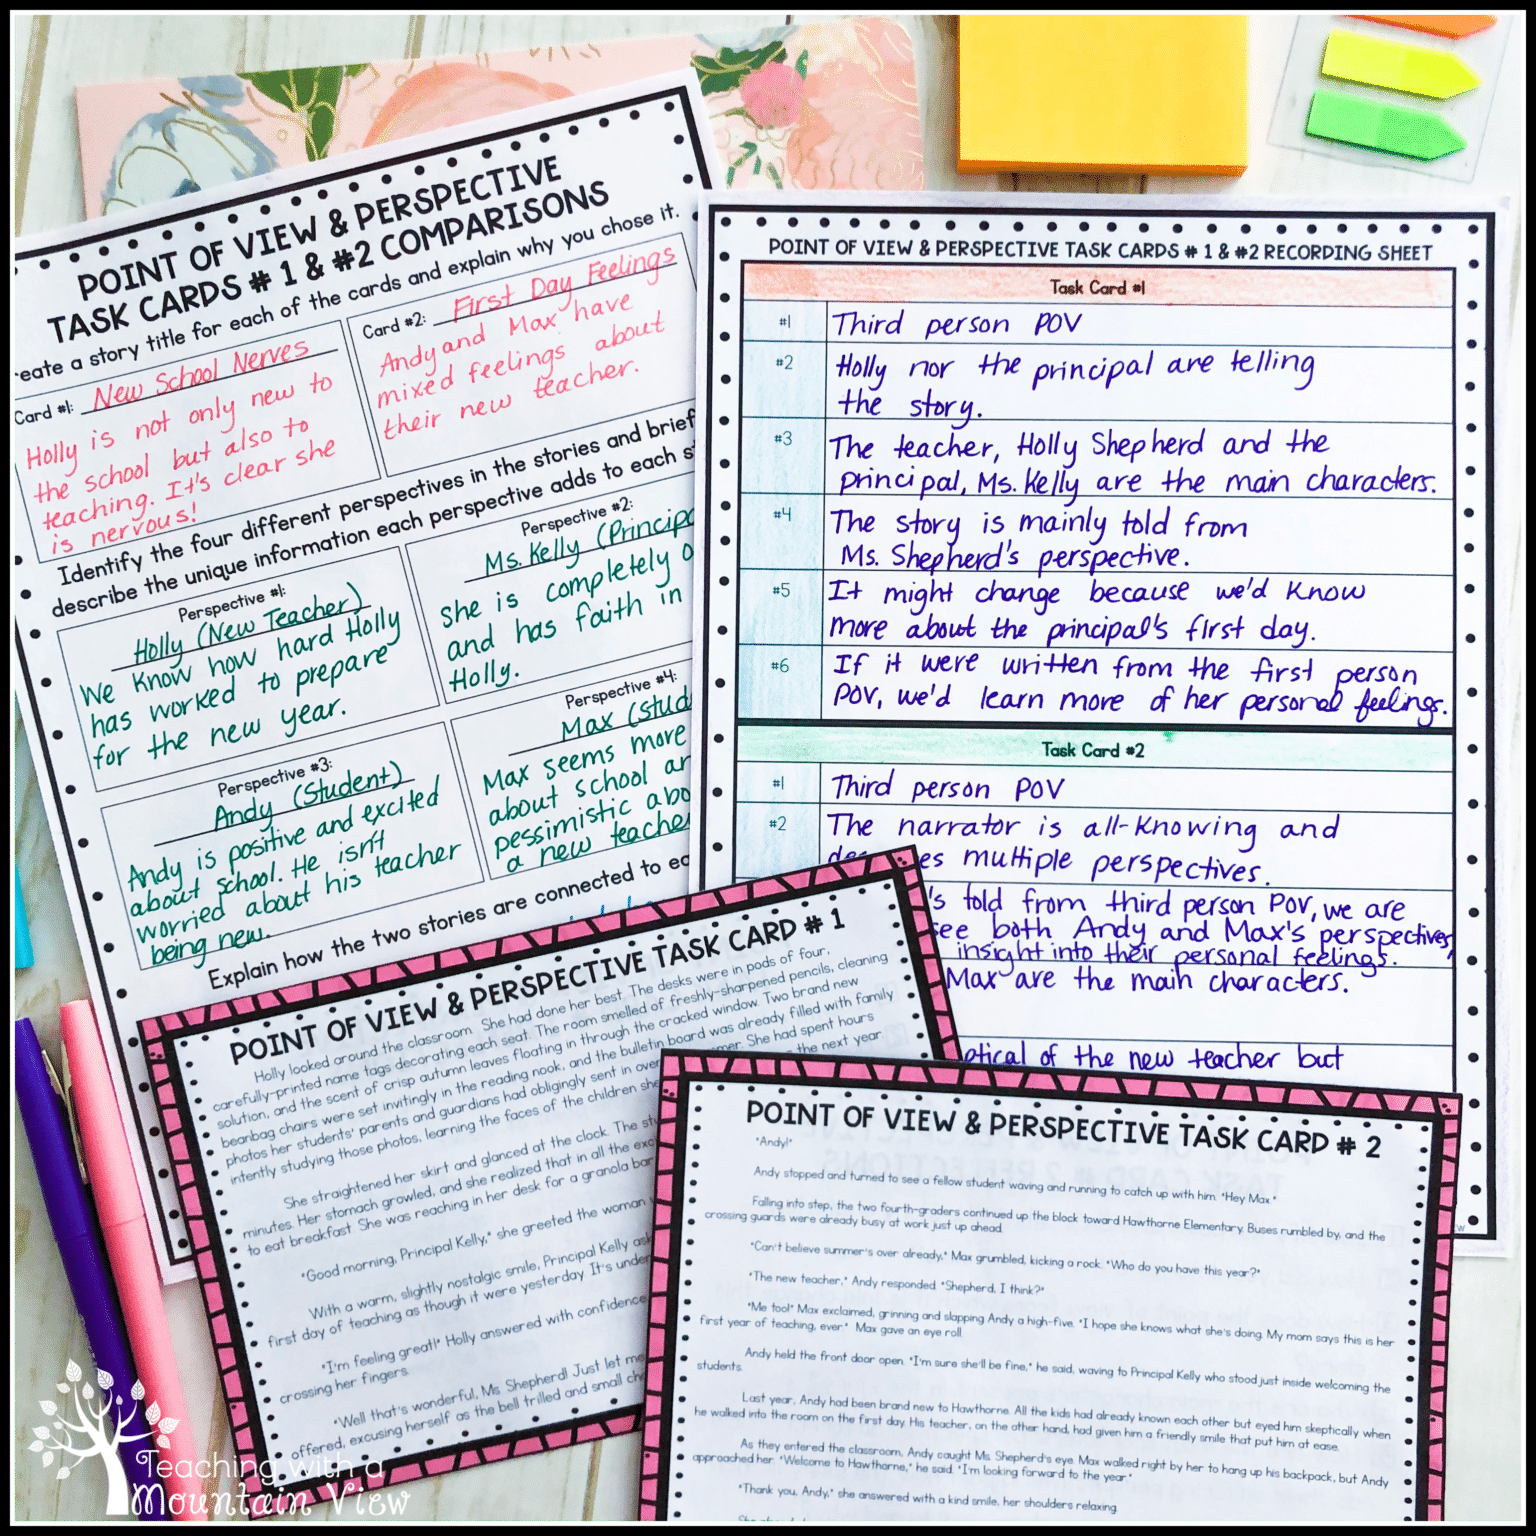 POINT OF VIEW & PERSPECTIVE
TASK CARDS # 1 & #2 COMPARISONS
reate a story title for each of the cards and explain why you chose it.
Card #1: New School Nerves
Holly is not only new to
the school but also to
teaching. It's clear she
is nervous!
Card #2: First Day Feelings
Andy and Max have
mixed feelings about
their new teacher.
Identify the four different perspectives in the stories and brief
describe the unique information each perspective adds to each s
Perspective #1:
Holly (New Teacher)
We know how hard Holly
has worked to prepare
for the new year.
Perspective #2:
Ms. Kelly (Principa
She is completely
and has faith in
Holly.
Perspective #3:
Andy (Student)
Andy is positive and excited
about school. He isn't
worried about his teacher
being new.
Perspective #4:
Max (Stud
Max seems more
about school
pessimistic abo
a new teache
Explain how the two stories are connected to
POINT OF VIEW & PERSPECTIVE TASK CARDS # 1 & #2 RECORDING SHEET
Task Card #1
#1 Third person POV
#2 Holly nor the principal are telling
the story.
#3 The teacher, Holly Shepherd and the
principal, Ms. Kelly are the main characters.
#4 The story is mainly told from
Ms. Shepherd's perspective.
#5 It might change because we'd know
more about the principal's first day.
#6 If it were written from the first person
POV, we'd learn more of her personal feelings.
Task Card #2
#1 Third person POV
#2 The narrator is all-knowing and
es multiple perspectives.
's told from third person POV, we are
see both Andy and Max's perspectives,
insight into their personal feelings.
Max are the main characters.
ptical of the new teacher but
POINT OF VIEW & PERSPECTIVE TASK CARD # 1
Holly looked around the classroom. She had done her best. The desks were in pods of four,
carefully-printed name tags decorating each seat. The room smelled of freshly-sharpened pencils, cleaning
solution, and the scent of crisp autumn leaves floating in through the cracked window. Two brand new
beanbag chairs were set invitingly in the reading nook, and the bulletin board was already filled with family
photos her students' parents and guardians had obligingly sent in over mer. She had spent hours
intently studying those photos, learning the faces of the children she the next year.
She straightened her skirt and glanced at the clock. The stu
minutes. Her stomach growled, and she realized that in all the exc
to eat breakfast. She was reaching in her desk for a granola bar
"Good morning, Principal Kelly," she greeted the woman
With a warm, slightly nostalgic smile, Principal Kelly ask
first day of teaching as though it were yesterday. It's under
"I'm feeling great!" Holly answered with confidence
crossing her fingers.
"Well that's wonderful, Ms. Shepherd! Just let me
offered, excusing herself as the bell trilled and small ch
POINT OF VIEW & PERSPECTIVE TASK CARD # 2
"Andy!"
Andy stopped and turned to see a fellow student waving and running to catch up with him. "Hey Max."
Falling into step, the two fourth-graders continued up the block toward Hawthorne Elementary. Buses rumbled by, and the
crossing guards were already busy at work just up ahead.
"Can't believe summer's over already," Max grumbled, kicking a rock. "Who do you have this year?"
"The new teacher," Andy responded. "Shepherd, I think?"
"Me too!" Max exclaimed, grinning and slapping Andy a high-five. "I hope she knows what she's doing. My mom says this is her
first year of teaching, ever." Max gave an eye roll.
Andy held the front door open. "I'm sure she'll be fine," he said, waving to Principal Kelly who stood just inside welcoming the
students.
Last year, Andy had been brand new to Hawthorne. All the kids had already known each other but eyed him skeptically when
he walked into the room on the first day. His teacher, on the other hand, had given him a friendly smile that put him at ease.
As they entered the classroom, Andy caught Ms. Shepherd's eye. Max walked right by her to hang up his backpack, but Andy
approached her. "Welcome to Hawthorne," he said. "I'm looking forward to the year."
"Thank you, Andy," she answered with a kind smile, her shoulders relaxing.
Teaching with a
Mountain View